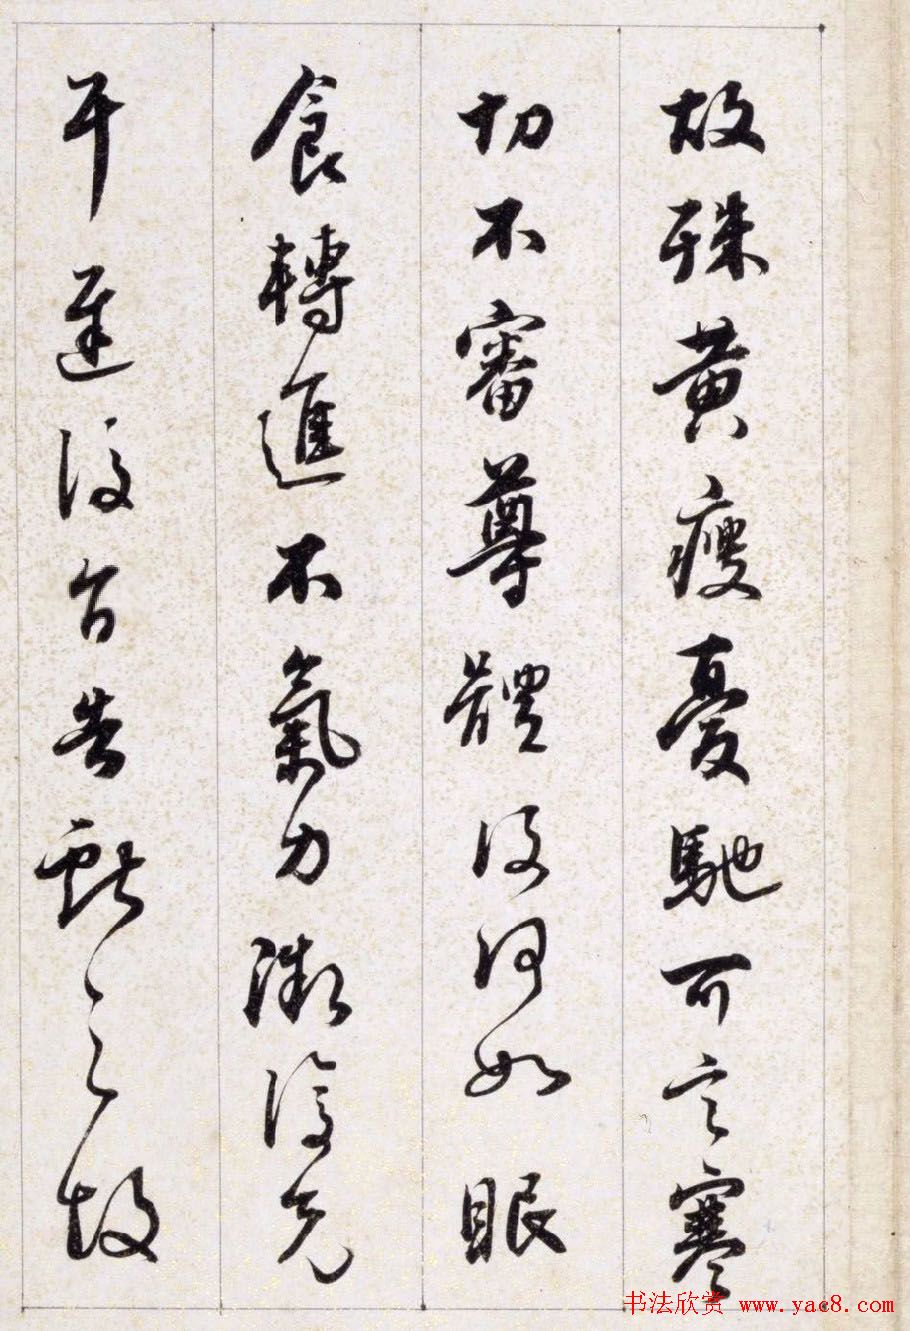 故殊黃瘦憂馳可言寒
切不審尊體復何如眠
食轉進不氣力漸復先
耳遲復告獻之故
书法欣赏 www.yac8.com